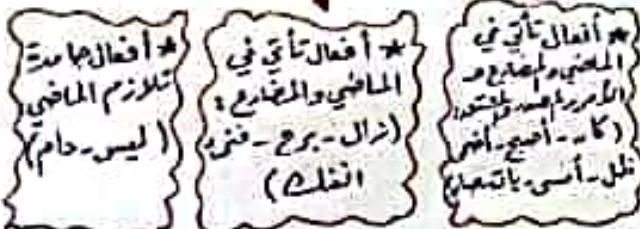 * أفعال تأتي في
الماضي والمضارع و
الأمر
(كان - أصبح - أضحى
ظل - أمسى - بات - صار)
* أفعال تأتي في
الماضي والمضارع:
(زال - برح - فتئ
انفك)
* أفعال جامدة
تلازم الماضي
(ليس - دام)